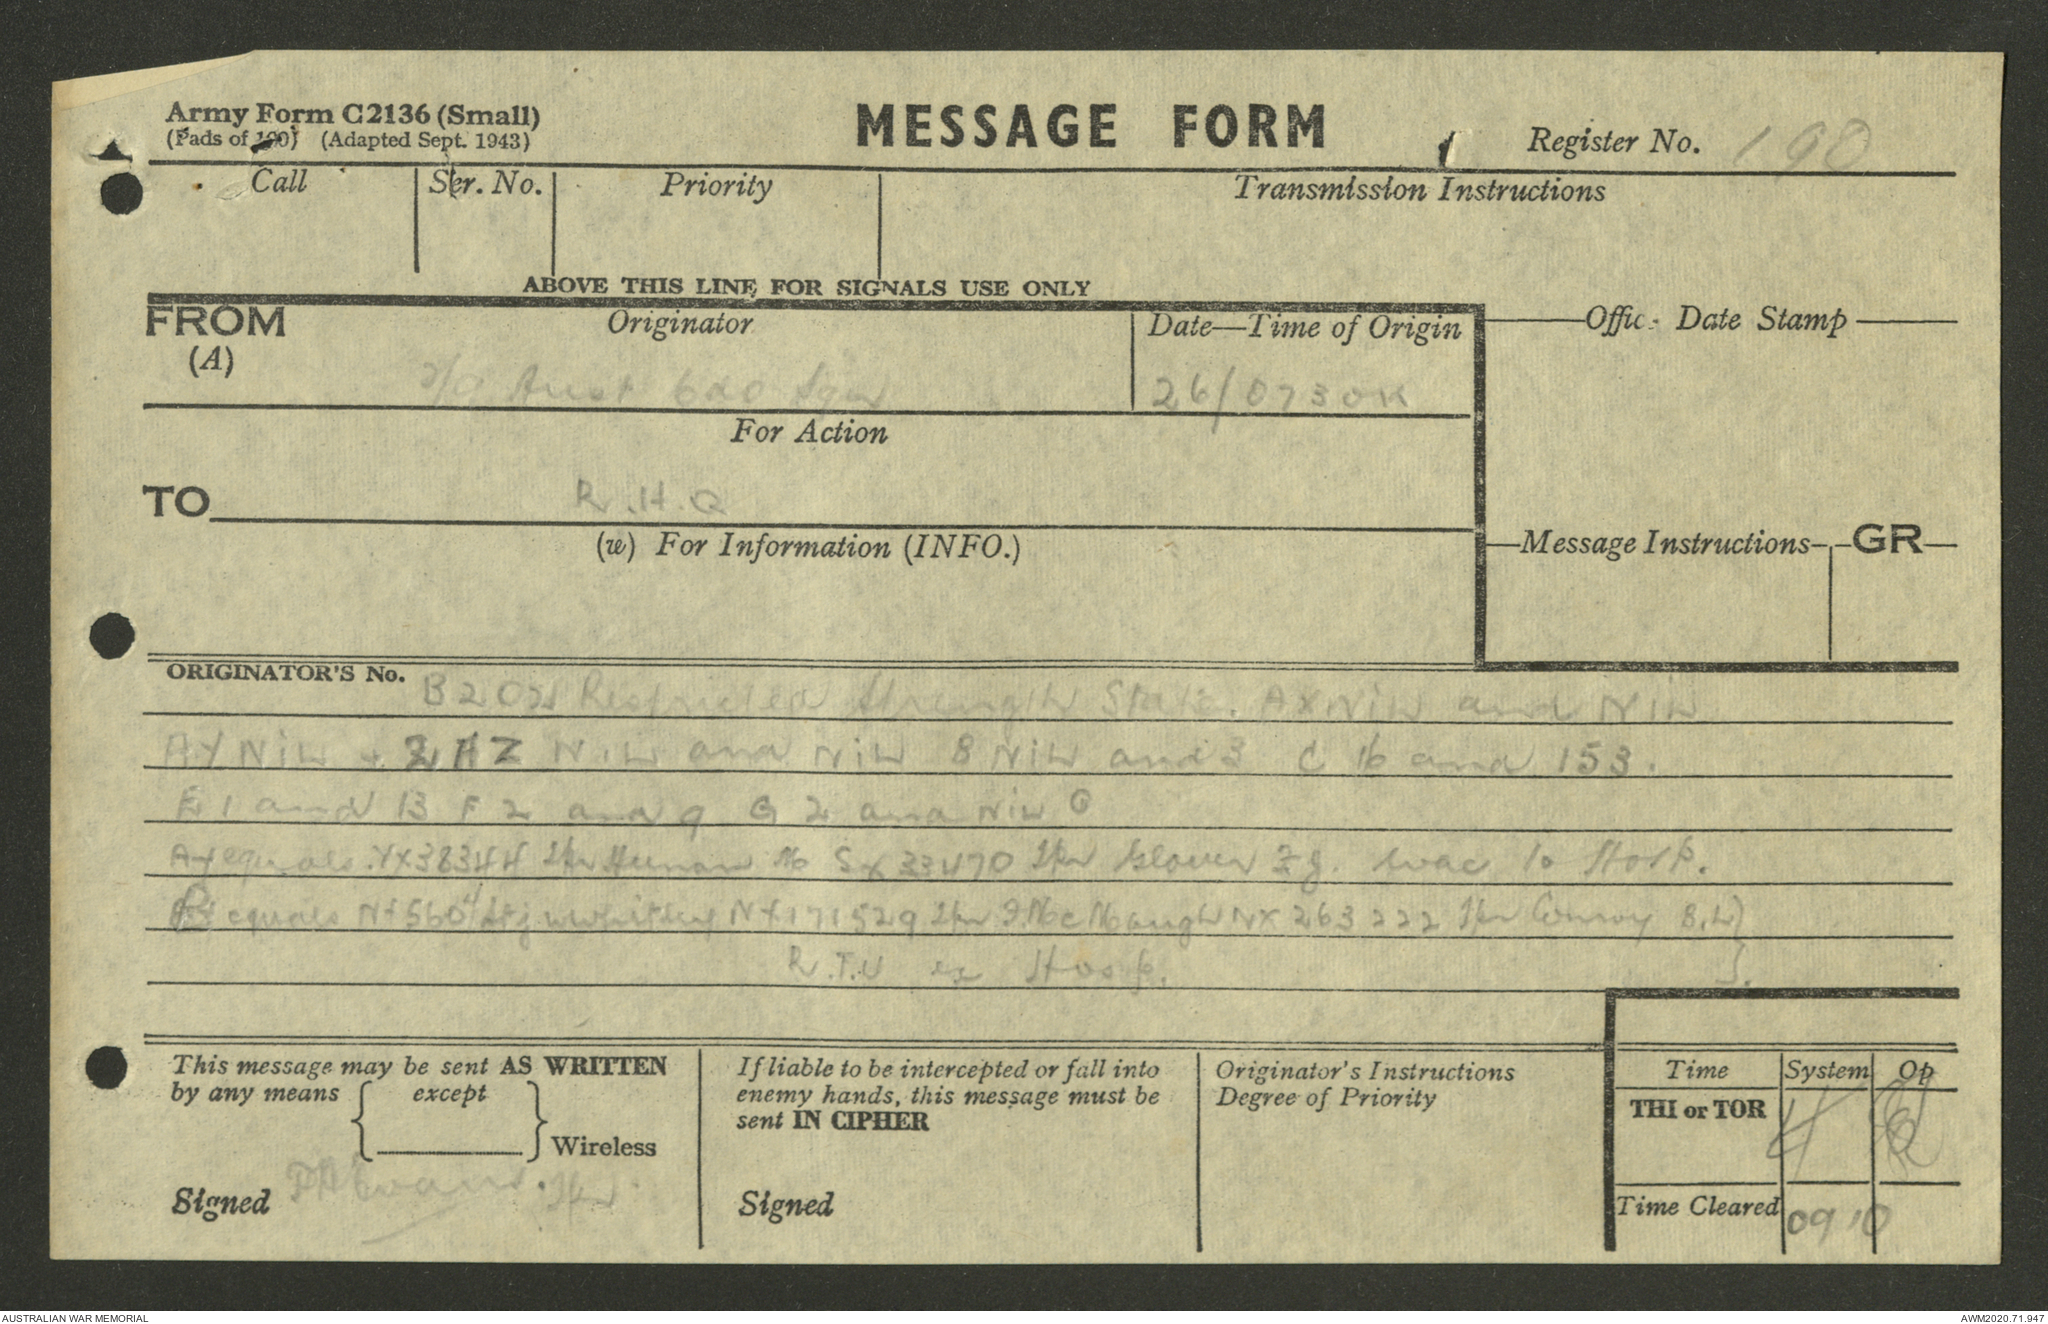 Army Form C2136 (Small)
(Pads of 100) (Adapted Sept. 1943)
MESSAGE FORM
Register No. 190
Call
Ser. No.
Priority
Transmission Instructions
ABOVE THIS LINE FOR SIGNALS USE ONLY
FROM
(A)
Originator
Date—Time of Origin
Office Date Stamp
2/9 Aust Cdo Sqn
26/0730K
For Action
TO
R.H.Q
(w) For Information (INFO.)
Message Instructions
GR
ORIGINATOR'S No.
B202 Restricted Strength State. AX NIL and NIL
AY NIL + 2 AZ NIL and NIL B NIL and 3 C 16 and 153.
E 1 and 13 F 2 and 9 G 2 and NIL
AY equals VX38344 Tpr Heenan SX33470 Tpr Glover evac to Hosp.
equals NX5604 NX171529 Tpr NX263222 Tpr Conroy B.L }
R.T.U ex Hosp. }.
This message may be sent AS WRITTEN
by any means { except } Wireless
Signed FA Evans. Tpr.
If liable to be intercepted or fall into
enemy hands, this message must be
sent IN CIPHER
Signed
Originator's Instructions
Degree of Priority
Time
System
Op
THI or TOR
Time Cleared
0910
AUSTRALIAN WAR MEMORIAL
AWM2020.71.947